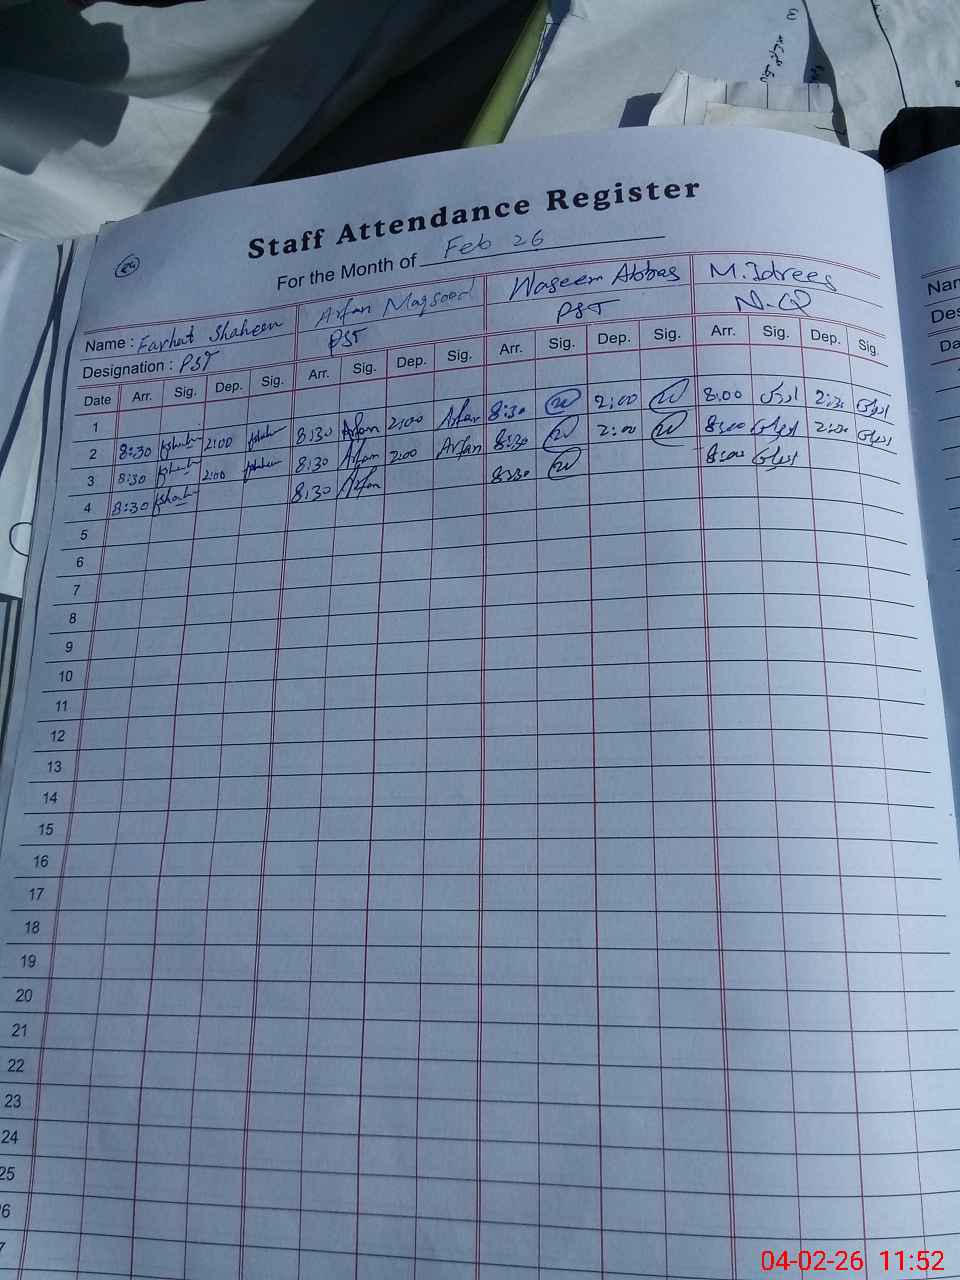 Staff Attendance Register
For the Month of Feb 26
Name : Farhat Shaheen Arfan Maqsood Waseem Abbas M. Idrees
Designation : PST PST PST N-Q
Date Arr. Sig. Dep. Sig. Arr. Sig. Dep. Sig. Arr. Sig. Dep. Sig. Arr. Sig. Dep. Sig.
1
2 8:30 2:00 8:30 Arfan 2:00 Arfan 8:30 2:00 8:00 ادریس 2:30 ادریس
3 8:30 2:00 8:30 Arfan 2:00 Arfan 8:30 2:00 8:00 ادریس 2:00 ادریس
4 8:30 8:30 Arfan 8:30 8:00 ادریس
5
6
7
8
9
10
11
12
13
14
15
16
17
18
19
20
21
22
23
24
25
6
7
Nam
Des
Da
04-02-26 11:52